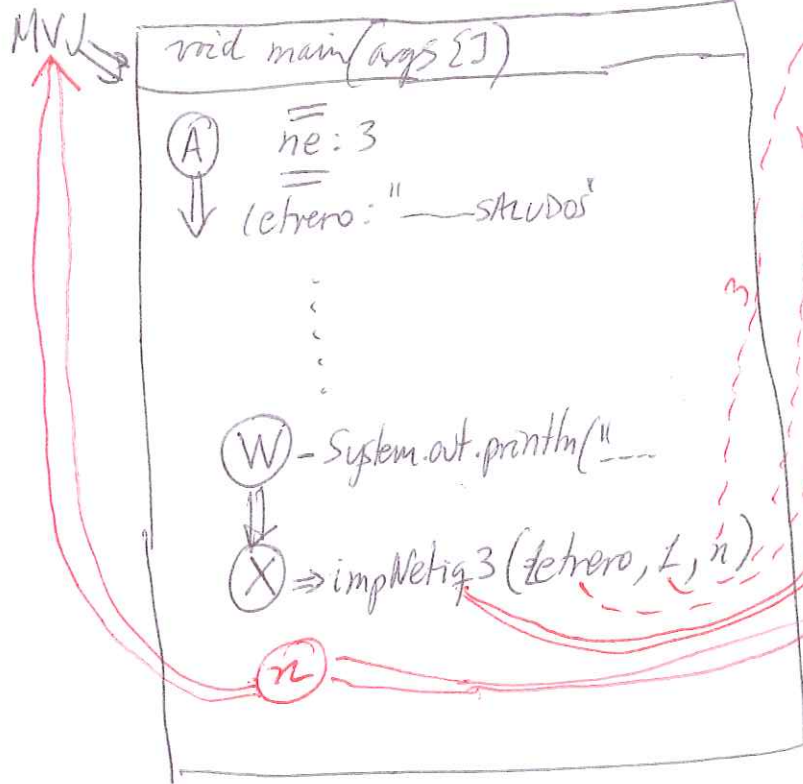 MVJ
void main(args[])
A ne: 3
letrero: "___SALUDOS"
W - System.out.println("----
X ⇒ impNetiq3(letrero, 1, n)
n